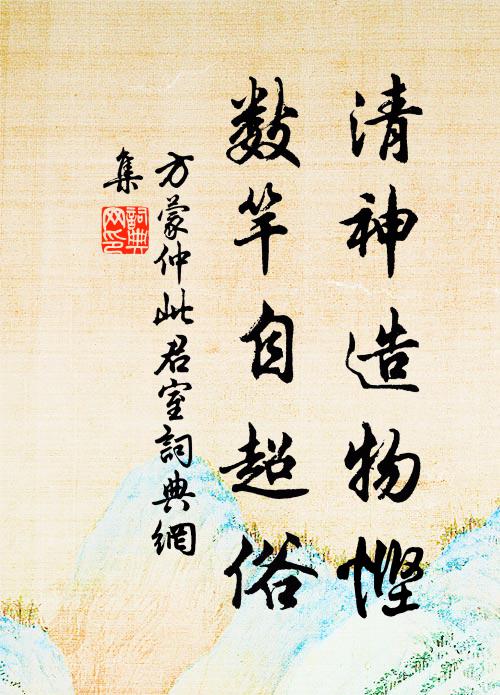 清神造物慳
數竿自超俗
方蒙仲此君室詞典網
集
詞典
网印